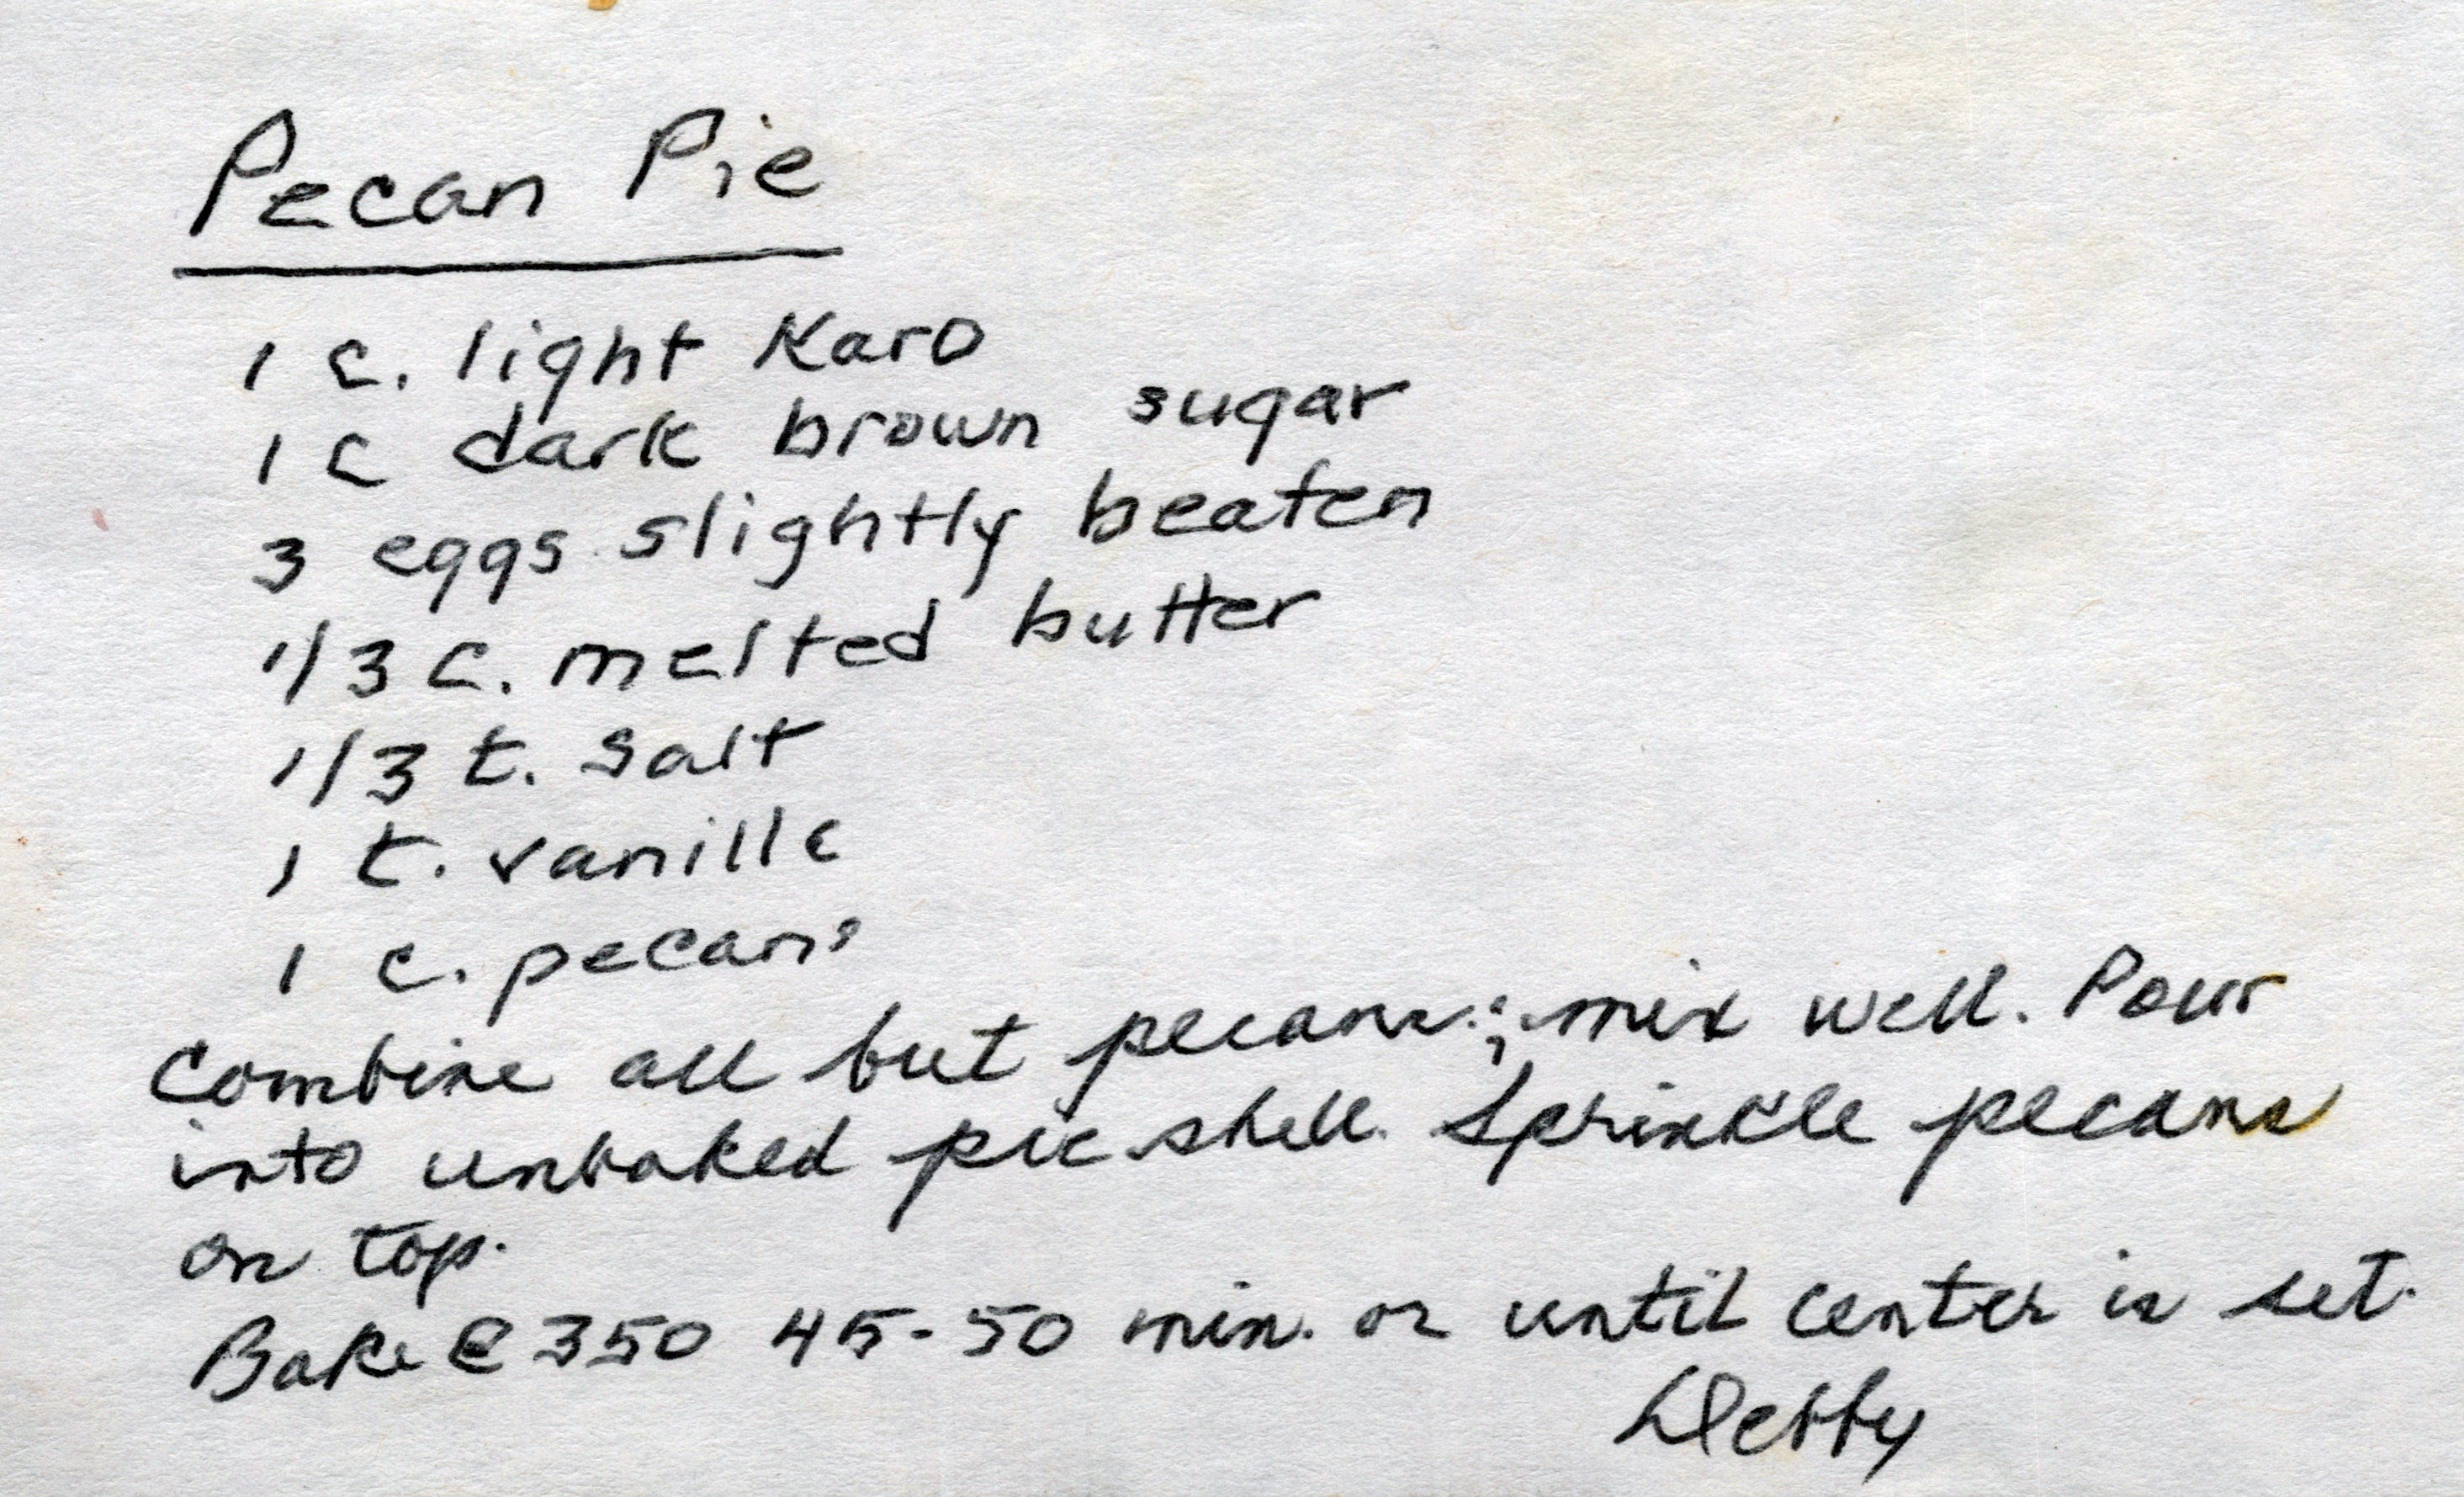 Pecan Pie
1 c. light Karo
1 c dark brown sugar
3 eggs slightly beaten
1/3 c. melted butter
1/3 t. salt
1 t. vanilla
1 c. pecans
Combine all but pecans; mix well. Pour
into unbaked pie shell. Sprinkle pecans
on top.
Bake @ 350 45-50 min. or until center is set.
Debby